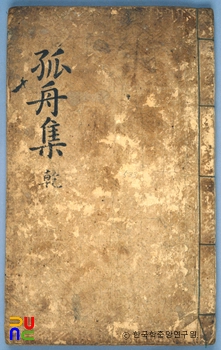 孤舟集
乾
© 한국학중앙연구원